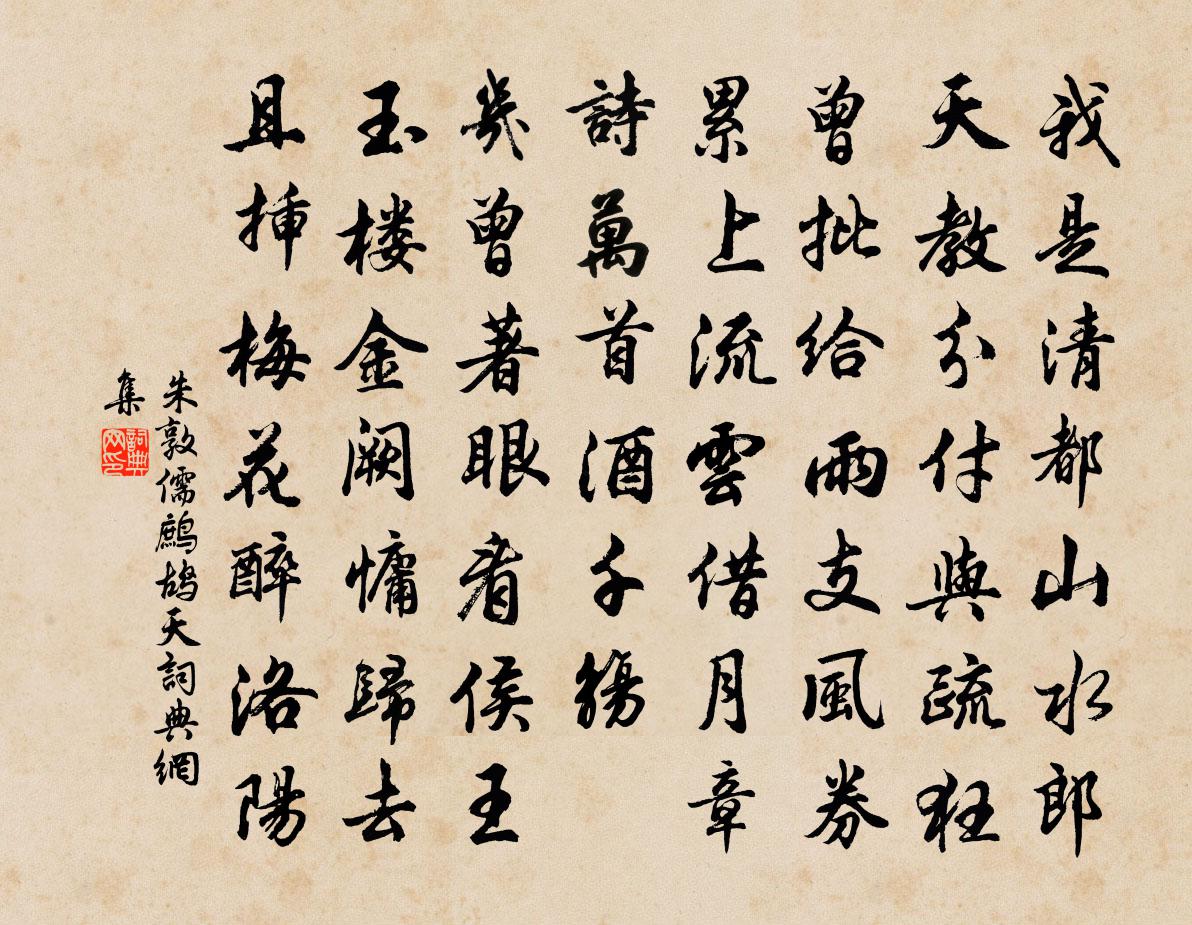 我是清都山水郎
天教分付與疏狂
曾批給雨支風券
累上流雲借月章
詩萬首酒千觴
幾曾著眼看侯王
玉楼金闕慵歸去
且插梅花醉洛陽
朱敦儒鷓鴣天詞典網
集
詞典
网印